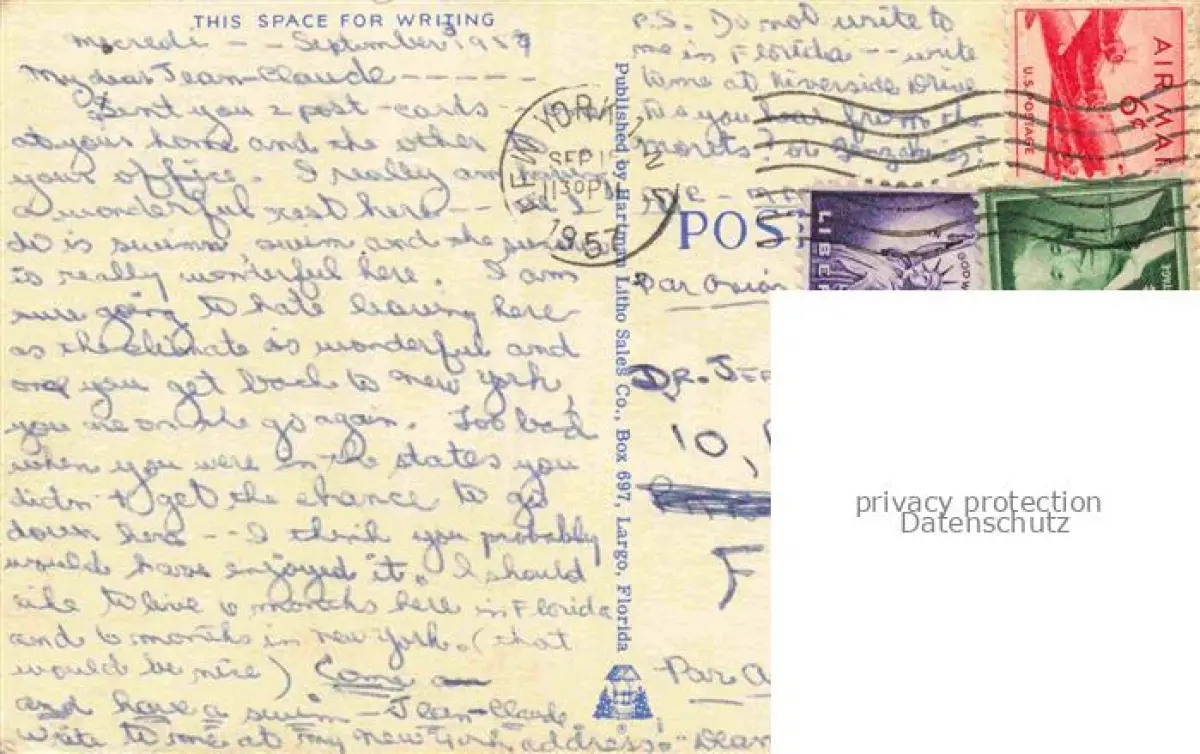 THIS SPACE FOR WRITING
Mecredi -- September 1957
My dear Jean-Claude -----
Sent you 2 post-cards
at your home and the other
your office. I really am having
a wonderful rest here --
do is swim swim and the
is really wonderful here. I am
sure going to hate leaving here
as the climate is wonderful and
once you get back to New York,
you're on the go again. Too bad
when you were in the states you
didn't get the chance to go
down here -- I think you probably
would have enjoyed it. I should
like to live 6 months here in Florida
and 6 months in New York. (that
would be nice) Come
and have a swim - Jean-Claude.
write to me at my New York address
P.S. Do not write to
me in Florida -- write
to me at Riverside Drive
Do you hear from the
Morets? or
Published by Hartman Litho Sales Co., Box 697, Largo, Florida
NEW YORK
SEP
1130PM
1957
AIR MAIL
6¢
U.S. POSTAGE
LIBER
POST
par avion
DR. JE
10,
F
Par A
privacy protection
Datenschutz